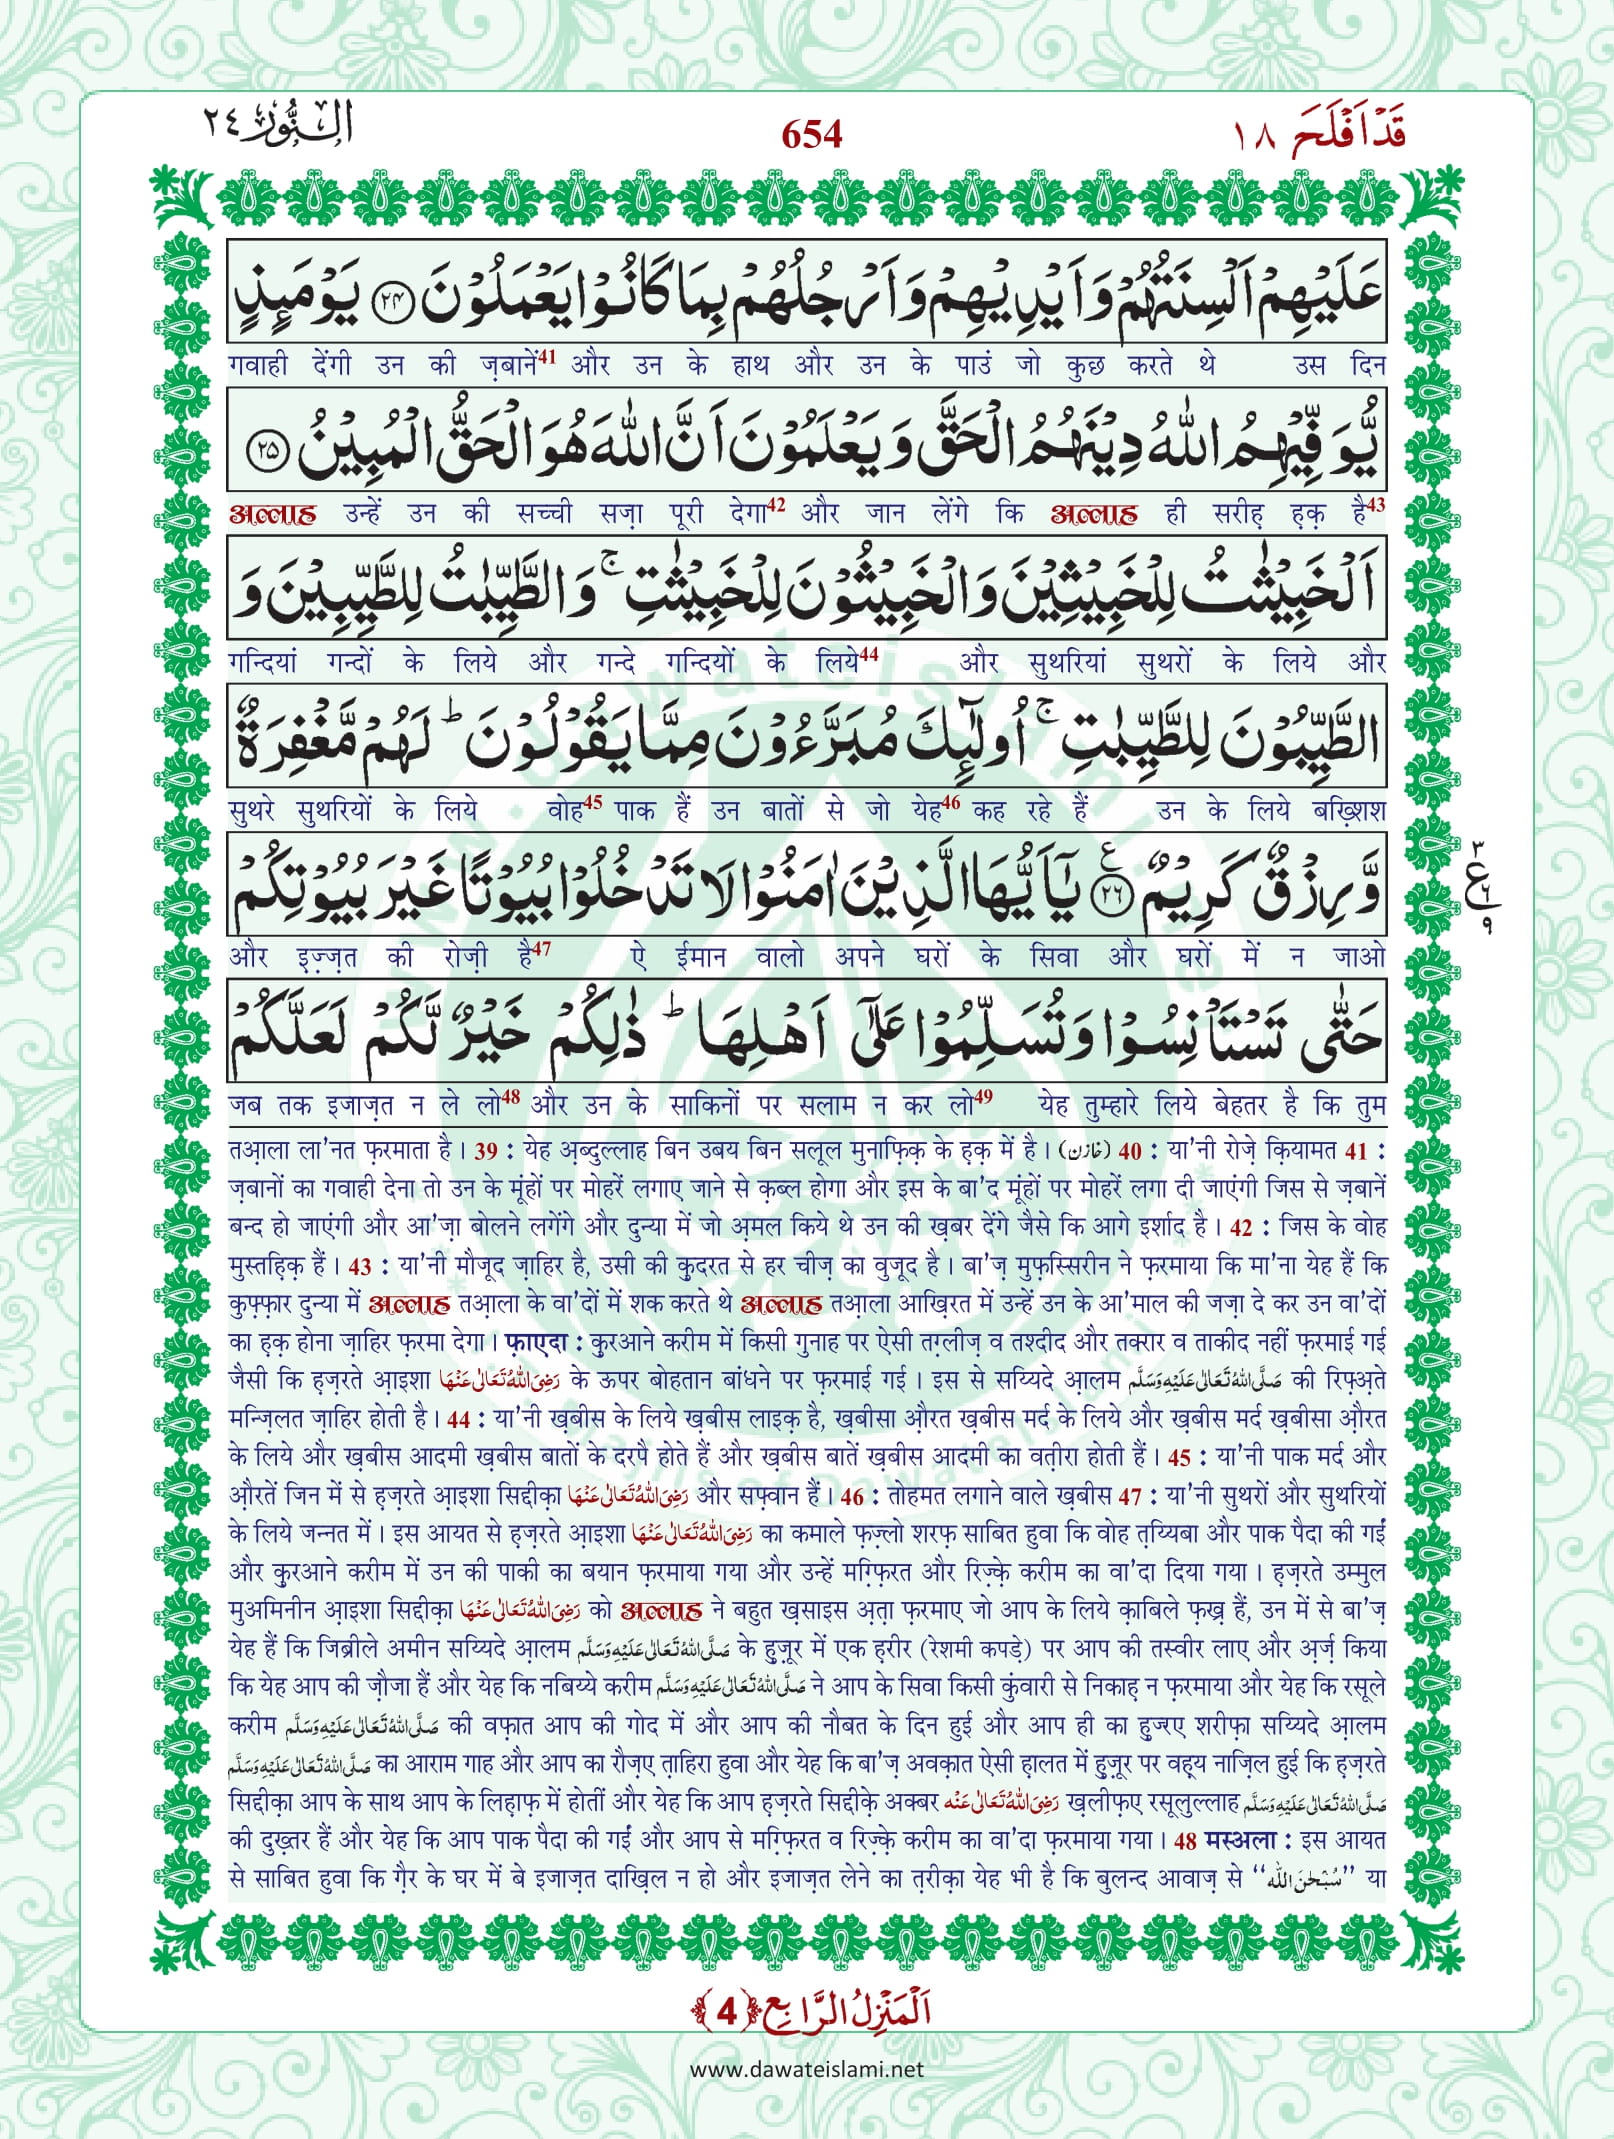 قَدْ اَفْلَحَ ١٨ 654 اَلنُّوْر ٢٤
عَلَیْهِمْ اَلْسِنَتُهُمْ وَ اَیْدِیْهِمْ وَ اَرْجُلُهُمْ بِمَا كَانُوْا یَعْمَلُوْنَ ﴿۲۴﴾ یَوْمَىٕذٍ
गवाही देंगी उन की ज़बानें41 और उन के हाथ और उन के पाउं जो कुछ करते थे उस दिन
یُّوَفِّیْهِمُ اللّٰهُ دِیْنَهُمُ الْحَقَّ وَ یَعْلَمُوْنَ اَنَّ اللّٰهَ هُوَ الْحَقُّ الْمُبِیْنُ ﴿۲۵﴾
अल्लाह उन्हें उन की सच्ची सज़ा पूरी देगा42 और जान लेंगे कि अल्लाह ही सरीह़ ह़क़ है43
اَلْخَبِیْثٰتُ لِلْخَبِیْثِیْنَ وَ الْخَبِیْثُوْنَ لِلْخَبِیْثٰتِۚ وَ الطَّیِّبٰتُ لِلطَّیِّبِیْنَ وَ
गन्दियां गन्दों के लिये और गन्दे गन्दियों के लिये44 और सुथरियां सुथरों के लिये और
الطَّیِّبُوْنَ لِلطَّیِّبٰتِۚ اُولٰٓىٕكَ مُبَرَّءُوْنَ مِمَّا یَقُوْلُوْنَؕ لَهُمْ مَّغْفِرَةٌ
सुथरे सुथरियों के लिये वोह45 पाक हैं उन बातों से जो येह46 कह रहे हैं उन के लिये बख़्शिश
وَّ رِزْقٌ كَرِیْمٌ ﴿۲۶﴾ ع یٰۤاَیُّهَا الَّذِیْنَ اٰمَنُوْا لَا تَدْخُلُوْا بُیُوْتًا غَیْرَ بُیُوْتِكُمْ
٣ ع ٦ ٩
और इ़ज़्ज़त की रोज़ी है47 ऐ ईमान वालो अपने घरों के सिवा और घरों में न जाओ
حَتّٰى تَسْتَاْنِسُوْا وَ تُسَلِّمُوْا عَلٰۤى اَهْلِهَاؕ ذٰلِكُمْ خَیْرٌ لَّكُمْ لَعَلَّكُمْ
जब तक इजाज़त न ले लो48 और उन के साकिनों पर सलाम न कर लो49 येह तुम्हारे लिये बेहतर है कि तुम
तआ़ला ला'नत फ़रमाता है। 39 : येह अ़ब्दुल्लाह बिन उबय बिन सलूल मुनाफ़िक़ के ह़क़ में है। (خازن) 40 : या'नी रोज़े क़ियामत 41 :
ज़बानों का गवाही देना तो उन के मूंहों पर मोहरें लगाए जाने से क़ब्ल होगा और इस के बा'द मूंहों पर मोहरें लगा दी जाएंगी जिस से ज़बानें
बन्द हो जाएंगी और आ'ज़ा बोलने लगेंगे और दुन्या में जो अ़मल किये थे उन की ख़बर देंगे जैसे कि आगे इर्शाद है। 42 : जिस के वोह
मुस्तह़िक़ हैं। 43 : या'नी मौजूद ज़ाहिर है, उसी की क़ुदरत से हर चीज़ का वुजूद है। बा'ज़ मुफ़स्सिरीन ने फ़रमाया कि मा'ना येह हैं कि
कुफ़्फ़ार दुन्या में अल्लाह तआ़ला के वा'दों में शक करते थे अल्लाह तआ़ला आख़िरत में उन्हें उन के आ'माल की जज़ा दे कर उन वा'दों
का ह़क़ होना ज़ाहिर फ़रमा देगा। फ़ाएदा : क़ुरआने करीम में किसी गुनाह पर ऐसी तग़्लीज़ व तश्दीद और तक्रार व ताकीद नहीं फ़रमाई गई
जैसी कि ह़ज़रते आ़इशा رَضِیَ اللّٰهُ تَعَالٰی عَنْهَا के ऊपर बोहतान बांधने पर फ़रमाई गई। इस से सय्यिदे आ़लम صَلَّی اللّٰهُ تَعَالٰی عَلَیْهِ وَسَلَّم की रिफ़्अ़ते
मन्ज़िलत ज़ाहिर होती है। 44 : या'नी ख़बीस के लिये ख़बीस लाइक़ है, ख़बीसा औ़रत ख़बीस मर्द के लिये और ख़बीस मर्द ख़बीसा औ़रत
के लिये और ख़बीस आदमी ख़बीस बातों के दरपै होते हैं और ख़बीस बातें ख़बीस आदमी का वत़ीरा होती हैं। 45 : या'नी पाक मर्द और
औ़रतें जिन में से ह़ज़रते आ़इशा सिद्दीक़ा رَضِیَ اللّٰهُ تَعَالٰی عَنْهَا और सफ़्वान हैं। 46 : तोहमत लगाने वाले ख़बीस 47 : या'नी सुथरों और सुथरियों
के लिये जन्नत में। इस आयत से ह़ज़रते आ़इशा رَضِیَ اللّٰهُ تَعَالٰی عَنْهَا का कमाले फ़ज़्लो शरफ़ साबित हुवा कि वोह त़य्यिबा और पाक पैदा की गईं
और क़ुरआने करीम में उन की पाकी का बयान फ़रमाया गया और उन्हें मग़्फ़िरत और रिज़्क़े करीम का वा'दा दिया गया। ह़ज़रते उम्मुल
मुअमिनीन आ़इशा सिद्दीक़ा رَضِیَ اللّٰهُ تَعَالٰی عَنْهَا को अल्लाह ने बहुत ख़साइस अ़त़ा फ़रमाए जो आप के लिये क़ाबिले फ़ख़्र हैं, उन में से बा'ज़
येह हैं कि जिब्रीले अमीन सय्यिदे आ़लम صَلَّی اللّٰهُ تَعَالٰی عَلَیْهِ وَسَلَّم के हुज़ूर में एक ह़रीर (रेशमी कपड़े) पर आप की तस्वीर लाए और अ़र्ज़ किया
कि येह आप की ज़ौजा हैं और येह कि नबिय्ये करीम صَلَّی اللّٰهُ تَعَالٰی عَلَیْهِ وَسَلَّم ने आप के सिवा किसी कुंवारी से निकाह़ न फ़रमाया और येह कि रसूले
करीम صَلَّی اللّٰهُ تَعَالٰی عَلَیْهِ وَسَلَّم की वफ़ात आप की गोद में और आप की नौबत के दिन हुई और आप ही का हुज्रए शरीफ़ा सय्यिदे आ़लम
صَلَّی اللّٰهُ تَعَالٰی عَلَیْهِ وَسَلَّم का आराम गाह और आप का रौज़ए त़ाहिरा हुवा और येह कि बा'ज़ अवक़ात ऐसी ह़ालत में हुज़ूर पर वह़्य नाज़िल हुई कि ह़ज़रते
सिद्दीक़ा आप के साथ आप के लिह़ाफ़ में होतीं और येह कि आप ह़ज़रते सिद्दीक़े अक्बर رَضِیَ اللّٰهُ تَعَالٰی عَنْه ख़लीफ़ए रसूलुल्लाह صَلَّی اللّٰهُ تَعَالٰی عَلَیْهِ وَسَلَّم
की दुख़्तर हैं और येह कि आप पाक पैदा की गईं और आप से मग़्फ़िरत व रिज़्क़े करीम का वा'दा फ़रमाया गया। 48 मस्अला : इस आयत
से साबित हुवा कि ग़ैर के घर में बे इजाज़त दाख़िल न हो और इजाज़त लेने का त़रीक़ा येह भी है कि बुलन्द आवाज़ से ‘‘سُبْحٰنَ اللّٰه’’ या
اَلْمَنْزِلُ الرَّابِع ﴿4﴾
www.dawateislami.net